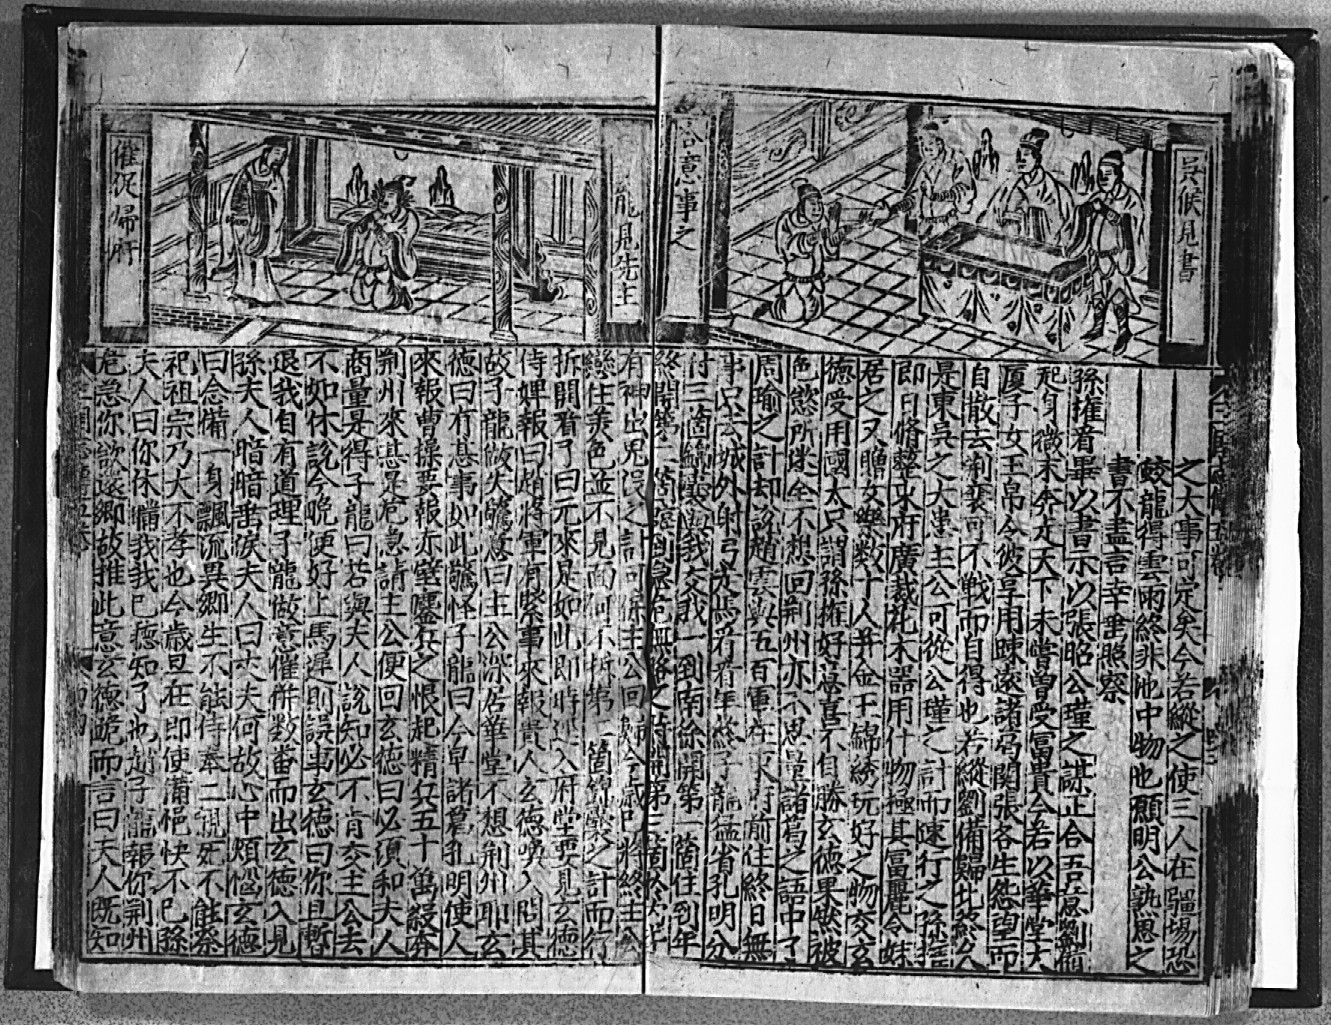 吳侯見書
合意事之
之大事可定矣今若縱之使三人在疆塲恐
蛟龍得雲雨終非池中物也願明公熟思之
書不盡言幸垂照察
孫權看畢以書示以張昭公瑾之謀正合吾意劉備
起身微末奔走天下未嘗曾受富貴今若以華堂大
厦子女玉帛令彼享用疎遠諸葛関張各生怨望而
自散去荊襄可不戰而自得也若縱劉備歸此終久
是東吳之大患主公可從公瑾之計而速行之孫權
即日脩整東府廣裁花木器用什物極其富麗令妹
居之又贈女樂數十人并金玉錦綉玩好之物交玄
德受用國太只謂孫權好意喜不自勝玄德果然被
色慾所迷全不想回荊州亦不思量諸葛之語中了
周瑜之計却說趙雲與五百軍在東府前住終日無
事只去城外射弓走馬看看年終子龍猛省孔明分
付三箇錦囊與我交我一到南徐開第一箇住到年
終開第二箇臨到急危無路之時開第三箇於內有
有神出鬼沒之計可保主公回歸今歲已將終主公
戀住美色並不見面何不拆第二箇錦囊之計而行
拆開看了曰元來是如此即時逕入府堂要見玄德
侍婢報曰趙將軍有緊事來報貴人玄德喚入問其
故子龍做失驚意曰主公深居華堂不想荊州耶玄
德曰有甚事如此驚怪子龍曰今早諸葛孔明使人
來報曹操要報赤壁鏖兵之恨起精兵五十萬殺奔
荊州來甚是危急請主公便回玄德曰必須和夫人
商量是得子龍曰若與夫人說知必不肯交主公去
不如休說今晚便好上馬遲則誤事玄德曰你且暫
退我自有道理子龍做意催併數畨而出玄德入見
孫夫人暗暗垂淚夫人曰丈夫何故心中煩惱玄德
曰念備一身飄流異鄉生不能侍奉二親死不能祭
祀祖宗乃大不孝也今歲旦在即使備悒怏不已孫
夫人曰你休瞞我我已聽知了也趙子龍報你荊州
危急你欲還鄉故推此意玄德跪而言曰夫人既知
龍見先主
催促歸府